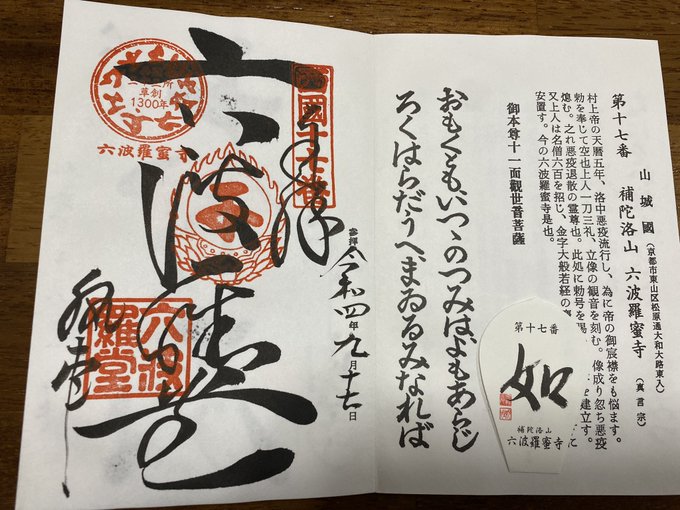 第十七番
山城國（京都市東山区松原通大和大路東入）
補陀洛山 六波羅蜜寺（真言宗）
村上帝の天暦五年、洛中悪疫流行し、為に帝の御宸襟をも悩ます。
勅を奉じて空也上人一刀三礼、立像の観音を刻む。像成り忽ち悪疫
熄む。之れ悪疫退散の霊尊也。此処に勅号を賜 建立す。
又上人は名僧六百を招じ、金字大般若経の に
安置す。今の六波羅蜜寺是也。
御本尊十一面觀世音菩薩
おもくともいつゝのつみはよもあらじ
ろくはらだうへまゐるみなれば
第十七番
如
補陀洛山
六波羅蜜寺
參拝 令和四年九月十七日
奉拝
西國十七番
草創
1300年
六波羅蜜寺
六波羅堂